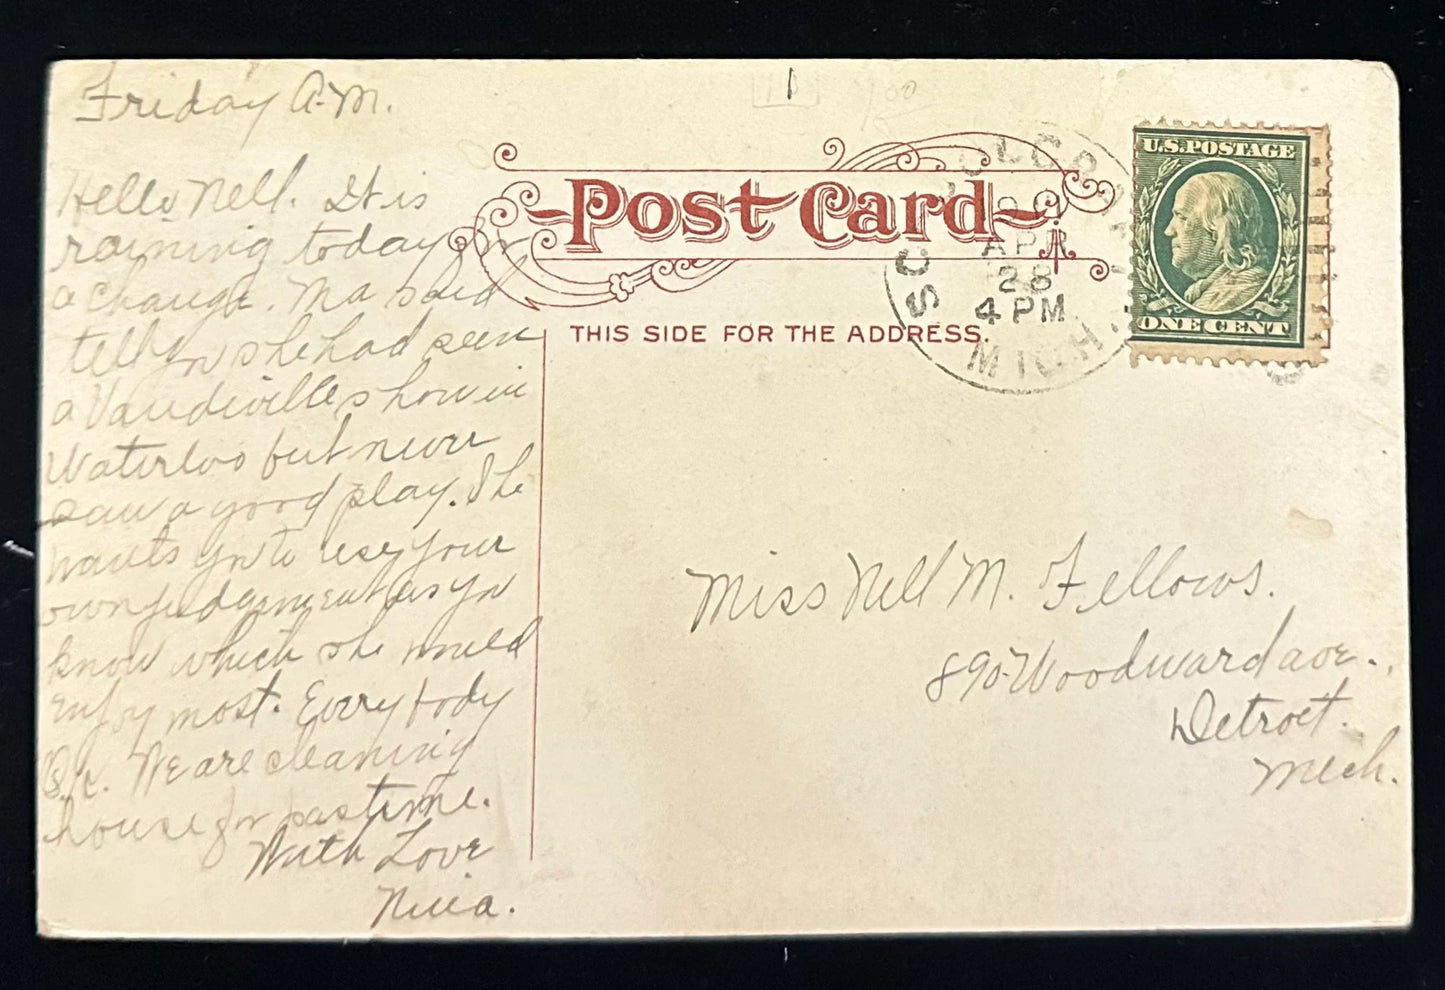 Friday A.M.
Hello Nell. It is
raining today for
a change. Ma said
tell you she had seen
a Vaudiville show in
Waterloo but never
saw a good play. She
wants you to use your
own judgement as you
know which she would
enjoy most. Every body
O.K. We are cleaning
house for pastime.
With Love
Nina.
Post Card
THIS SIDE FOR THE ADDRESS.
APR
28
4 PM
MICH.
U.S. POSTAGE
ONE CENT
Miss Nell M. Fellows.
890 Woodward ave.,
Detroit.
Mich.